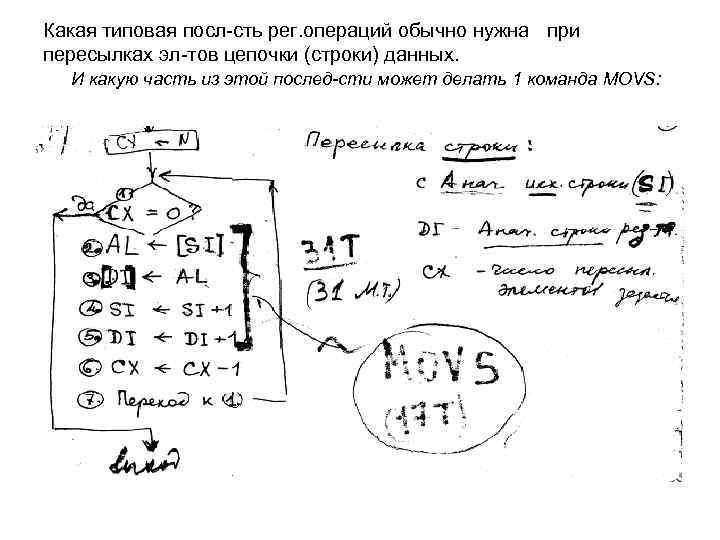 Какая типовая посл-сть рег.операций обычно нужна при
пересылках эл-тов цепочки (строки) данных.
И какую часть из этой послед-сти может делать 1 команда MOVS:
CX ← N
Да
1.
CX = 0?
2. AL ← [SI]
3. [DI] ← AL
4. SI ← SI+1
5. DI ← DI+1
6. CX ← CX-1
7. Переход к (1)
Выход
31T
(31 М.Т.)
MOVS
(17T)
Пересылка строки:
с Aнач. исх. строки (SI)
DI - Aнач. строки рез-та
CX - Число пересыл.
элементов